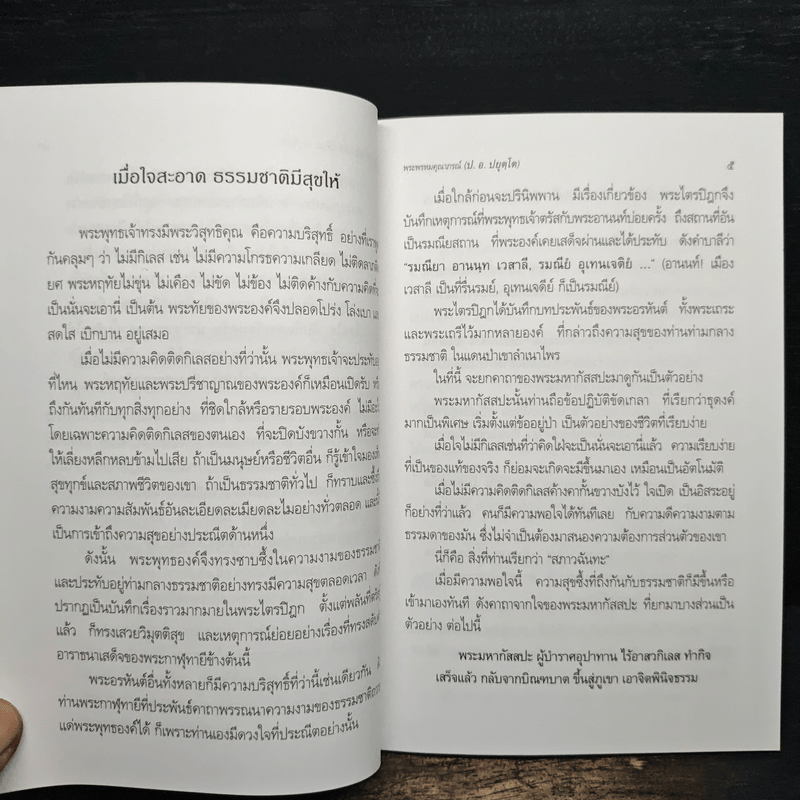 เมื่อใจสะอาด ธรรมชาติมีสุขให้
พระพุทธเจ้าทรงมีพระวิสุทธิคุณ คือความบริสุทธิ์ อย่างที่เราพูด
กันคลุมๆ ว่า ไม่มีกิเลส เช่น ไม่มีความโกรธความเกลียด ไม่ติดลาภติด
ยศ พระหฤทัยไม่ขุ่น ไม่เคือง ไม่ขัด ไม่ข้อง ไม่ติดค้างกับความคิดที่จะ
เป็นนั่นจะเอานี่ เป็นต้น พระทัยของพระองค์จึงปลอดโปร่ง โล่งเบา
สดใส เบิกบาน อยู่เสมอ
เมื่อไม่มีความคิดติดกิเลสอย่างที่ว่านั้น พระพุทธเจ้าจะประทับอยู่
ที่ไหน พระหฤทัยและพระปรีชาญาณของพระองค์ก็เหมือนเปิดรับ
ถึงกันทันทีกับทุกสิ่งทุกอย่าง ที่ชิดใกล้หรือรายรอบพระองค์ ไม่มีอะไร
โดยเฉพาะความคิดติดกิเลสของตนเอง ที่จะปิดบังขวางกั้น
ให้เลี่ยงหลีกหลบข้ามไปเสีย ถ้าเป็นมนุษย์หรือชีวิตอื่น ก็รู้เข้าใจมองเห็น
สุขทุกข์และสภาพชีวิตของเขา ถ้าเป็นธรรมชาติทั่วไป ก็ทราบและซึ้งถึง
ความงามความสัมพันธ์อันละเอียดละเมียดละไมอย่างทั่วตลอด
เป็นการเข้าถึงความสุขอย่างประณีตด้านหนึ่ง
ดังนั้น พระพุทธองค์จึงทรงซาบซึ้งในความงามของธรรมชาติ
และประทับอยู่ท่ามกลางธรรมชาติอย่างทรงมีความสุขตลอดเวลา
ปรากฏเป็นบันทึกเรื่องราวมากมายในพระไตรปิฎก ตั้งแต่พลันที่ตรัสรู้
แล้ว ก็ทรงเสวยวิมุตติสุข และเหตุการณ์ย่อยอย่างเรื่องที่ทรงสดับคำ
อาราธนาเสด็จของพระกาฬุทายีข้างต้นนี้
พระอรหันต์อื่นทั้งหลายก็มีความบริสุทธิ์ที่ว่านี้เช่นเดียวกัน
ท่านพระกาฬุทายีที่ประพันธ์คาถาพรรณนาความงามของธรรมชาติ
แด่พระพุทธองค์ได้ ก็เพราะท่านเองมีดวงใจที่ประณีตอย่างนั้น
พระพรหมคุณาภรณ์ (ป. อ. ปยุตฺโต) ๕
เมื่อใกล้ก่อนจะปรินิพพาน มีเรื่องเกี่ยวข้อง พระไตรปิฎกจึง
บันทึกเหตุการณ์ที่พระพุทธเจ้าตรัสกับพระอานนท์บ่อยครั้ง ถึงสถานที่อัน
เป็นรมณียสถาน ที่พระองค์เคยเสด็จผ่านและได้ประทับ ดังคำบาลีว่า
“รมณียา อานนฺท เวสาลี, รมณียํ อุเทนเจติยํ ...” (อานนท์! เมือง
เวสาลี เป็นที่รื่นรมย์, อุเทนเจดีย์ ก็เป็นรมณีย์)
พระไตรปิฎกได้บันทึกบทประพันธ์ของพระอรหันต์ ทั้งพระเถระ
และพระเถรีไว้มากหลายองค์ ที่กล่าวถึงความสุขของท่านท่ามกลาง
ธรรมชาติ ในแดนป่าเขาลำเนาไพร
ในที่นี้ จะยกคาถาของพระมหากัสสปะมาดูกันเป็นตัวอย่าง
พระมหากัสสปะนั้นท่านถือข้อปฏิบัติขัดเกลา ที่เรียกว่าธุดงค์
มากเป็นพิเศษ เริ่มตั้งแต่ข้ออยู่ป่า เป็นตัวอย่างของชีวิตที่เรียบง่าย
เมื่อใจไม่มีกิเลสเช่นที่ว่าคิดใฝ่จะเป็นนั่นจะเอานี่แล้ว ความเรียบง่าย
ที่เป็นของแท้ของจริง ก็ย่อมจะเกิดจะมีขึ้นมาเอง เหมือนเป็นอัตโนมัติ
เมื่อไม่มีความคิดติดกิเลสค้างคากั้นขวางบังไว้ ใจเปิด เป็นอิสระอยู่
ก็อย่างที่ว่าแล้ว คนก็มีความพอใจได้ทันทีเลย กับความดีความงามตาม
ธรรมดาของมัน ซึ่งไม่จำเป็นต้องมาสนองความต้องการส่วนตัวของเขา
นี่ก็คือ สิ่งที่ท่านเรียกว่า “สภาวฉันทะ”
เมื่อมีความพอใจนี้ ความสุขซึ้งที่ถึงกันกับธรรมชาติก็มีขึ้นหรือ
เข้ามาเองทันที ดังคาถาจากใจของพระมหากัสสปะ ที่ยกมาบางส่วนเป็น
ตัวอย่าง ต่อไปนี้
พระมหากัสสปะ ผู้ปราศอุปาทาน ไร้อาสวกิเลส ทำกิจ
เสร็จแล้ว กลับจากบิณฑบาต ขึ้นสู่ภูเขา เอาจิตพินิจธรรม